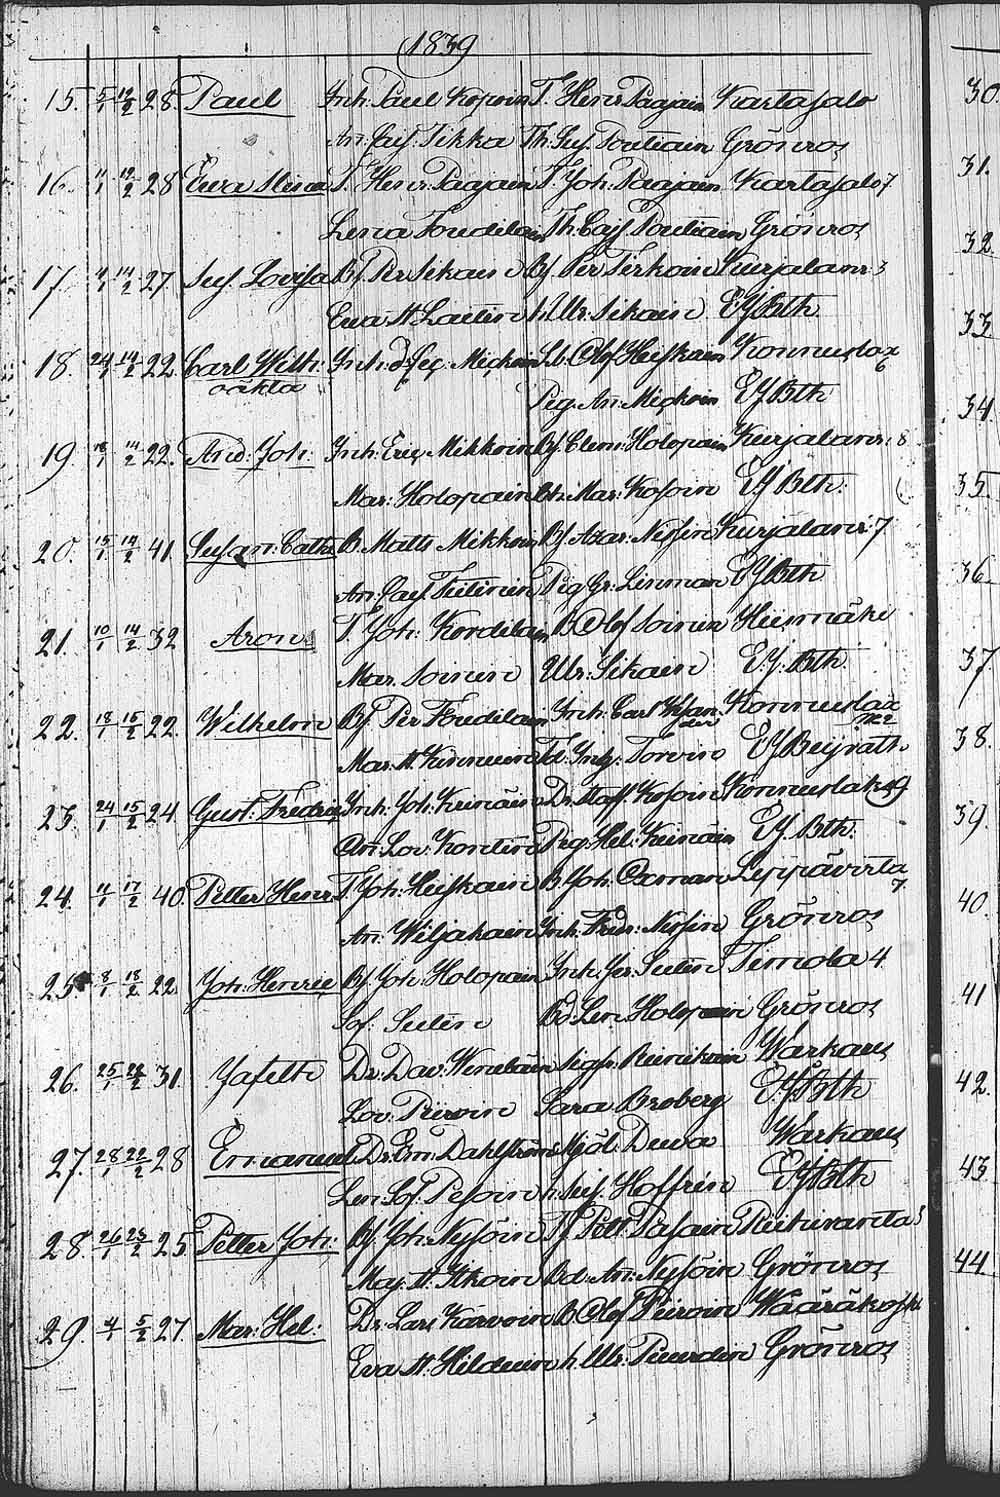 1839
15. 5/1 12/2 28. Paul Inh: Paul Kopoin T. Henr Paajain Kartasalo
An: Caj. Tikka Th. Sus. Poutiain Grönros
16. 11/1 12/2 28 Ewa Stina T. Henr: Paajain T. Joh: Paajain Kartasalo 7
Lena Toudilain Th. Cajs Poutiain Grönros
17. 11/1 14/2 27. Sus. Lovisa Bf. Per Sikain Bf. Per Kurjalanr: 3
Ewa St. Laitin h. Ulr. Sikain E. J. Bth
18. 24/1 14/2 22. Carl Wilh: Inh: d: Olof Heiskain Konnuslax 6
oäkta Pig. An: E J Bth
19. 18/1 14/2 22. And: Joh: Inh: Eric Mikkoin Bf. Clem: Holopain Kurjalanr: 8
Mar: Holopain h: Mar: Kosoin E J Bth:
20. 15/1 14/2 41. Susan: Cath: B. Matts Mikkoin Bf Azar: Nissin Kurjalanr: 7
An: Caj. Tiilinin Pig Gr: Linman E J Bth
21. 10/1 14/2 32 Aron: T. Joh: Kordilain B Olof Soinin Heinmäki
Mar: Soinin Ulr: Sikain E. J. Bth.
22. 18/1 15/2 22. Wilhelm Bf. Per Toudilain Inh: Carl Konnuslax
Mar: St. Kinnunin Torvin E J Beijrath
23. 24/1 15/2 24. Gust: Fredric Inh: Joh: Keinäin Dr. Staff. Kosoin Konnuslax 9
An: Lov: Kontin Pig: Hel: Keinäin E. J. Bth:
24. 11/1 17/2 40. Petter Henr. T. Joh: Heiskain B. Joh: Oxman Leppävirta 7.
An: Wiljakain Inh: Nissin Grönros
25. 8/1 18/2 22. Joh: Henric Bf. Joh: Holopain Inh: Sutin Timola 4.
Sof: Sutin Bd: Len: Holopain Grönros
26. 25/1 22/2 31. Jafeth Dr. Dav: Reinikain Warkaus
Lov: Sara Broberg E. J Bth
27. 28/1 22/2 28 Emanuel Dr. Em: Dahlström Mjöl: Duva Warkaus
Len: Sof: Pesoin h. Sus: Hoffrén E J Bth
28. 26/1 23/2 25. Petter Joh: Bf. Joh: Nysöin Pasain
Maj St. Itkoin Bd: An: Nysöin Grönros
29. 4/1 5/2 27. Mar: Hel: Dr. Lars Karvoin B Olof Wääräkoski
Eva St. h. Ulr. Grönros
30.
31.
32
33
34.
35
36
37
38.
39.
40.
41
42.
43
44.